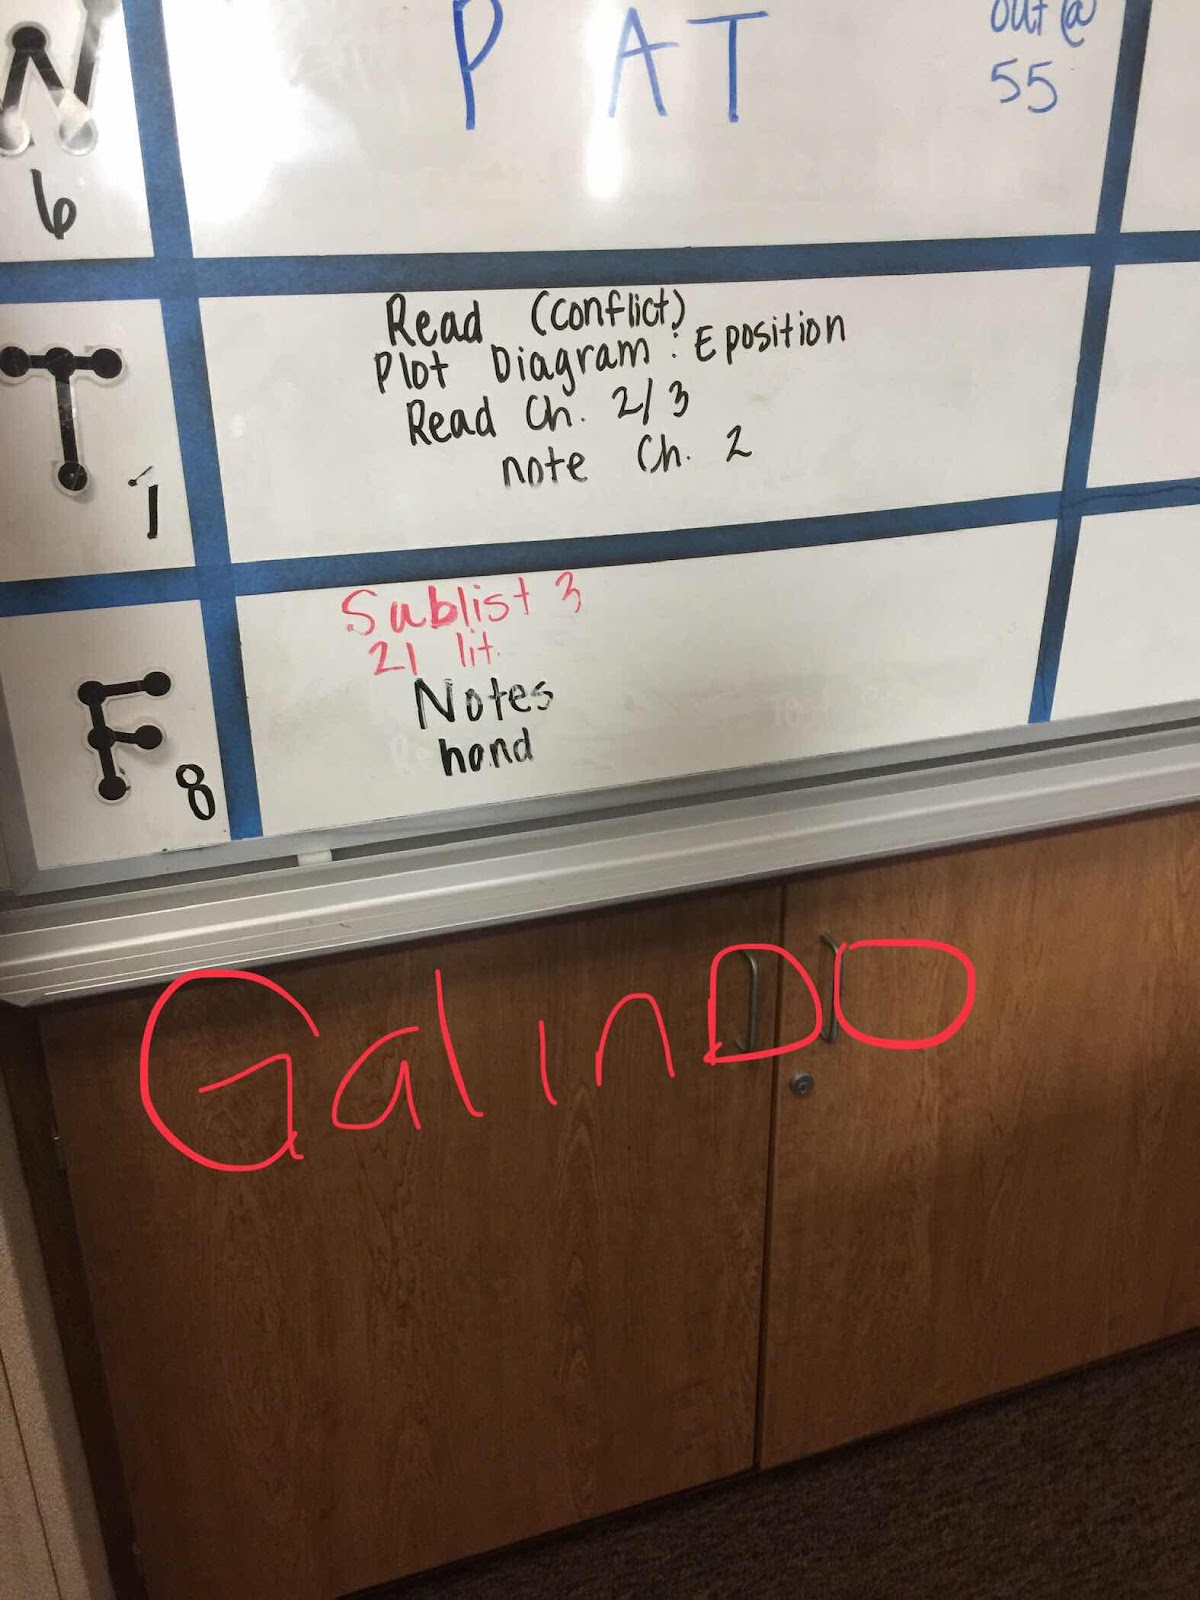 W
6
P AT
out @
55
T
7
Read (conflict)
Plot Diagram: Eposition
Read Ch. 2/3
note Ch. 2
F
8
Sublist 3
21 lit.
Notes
hand
GalinDO